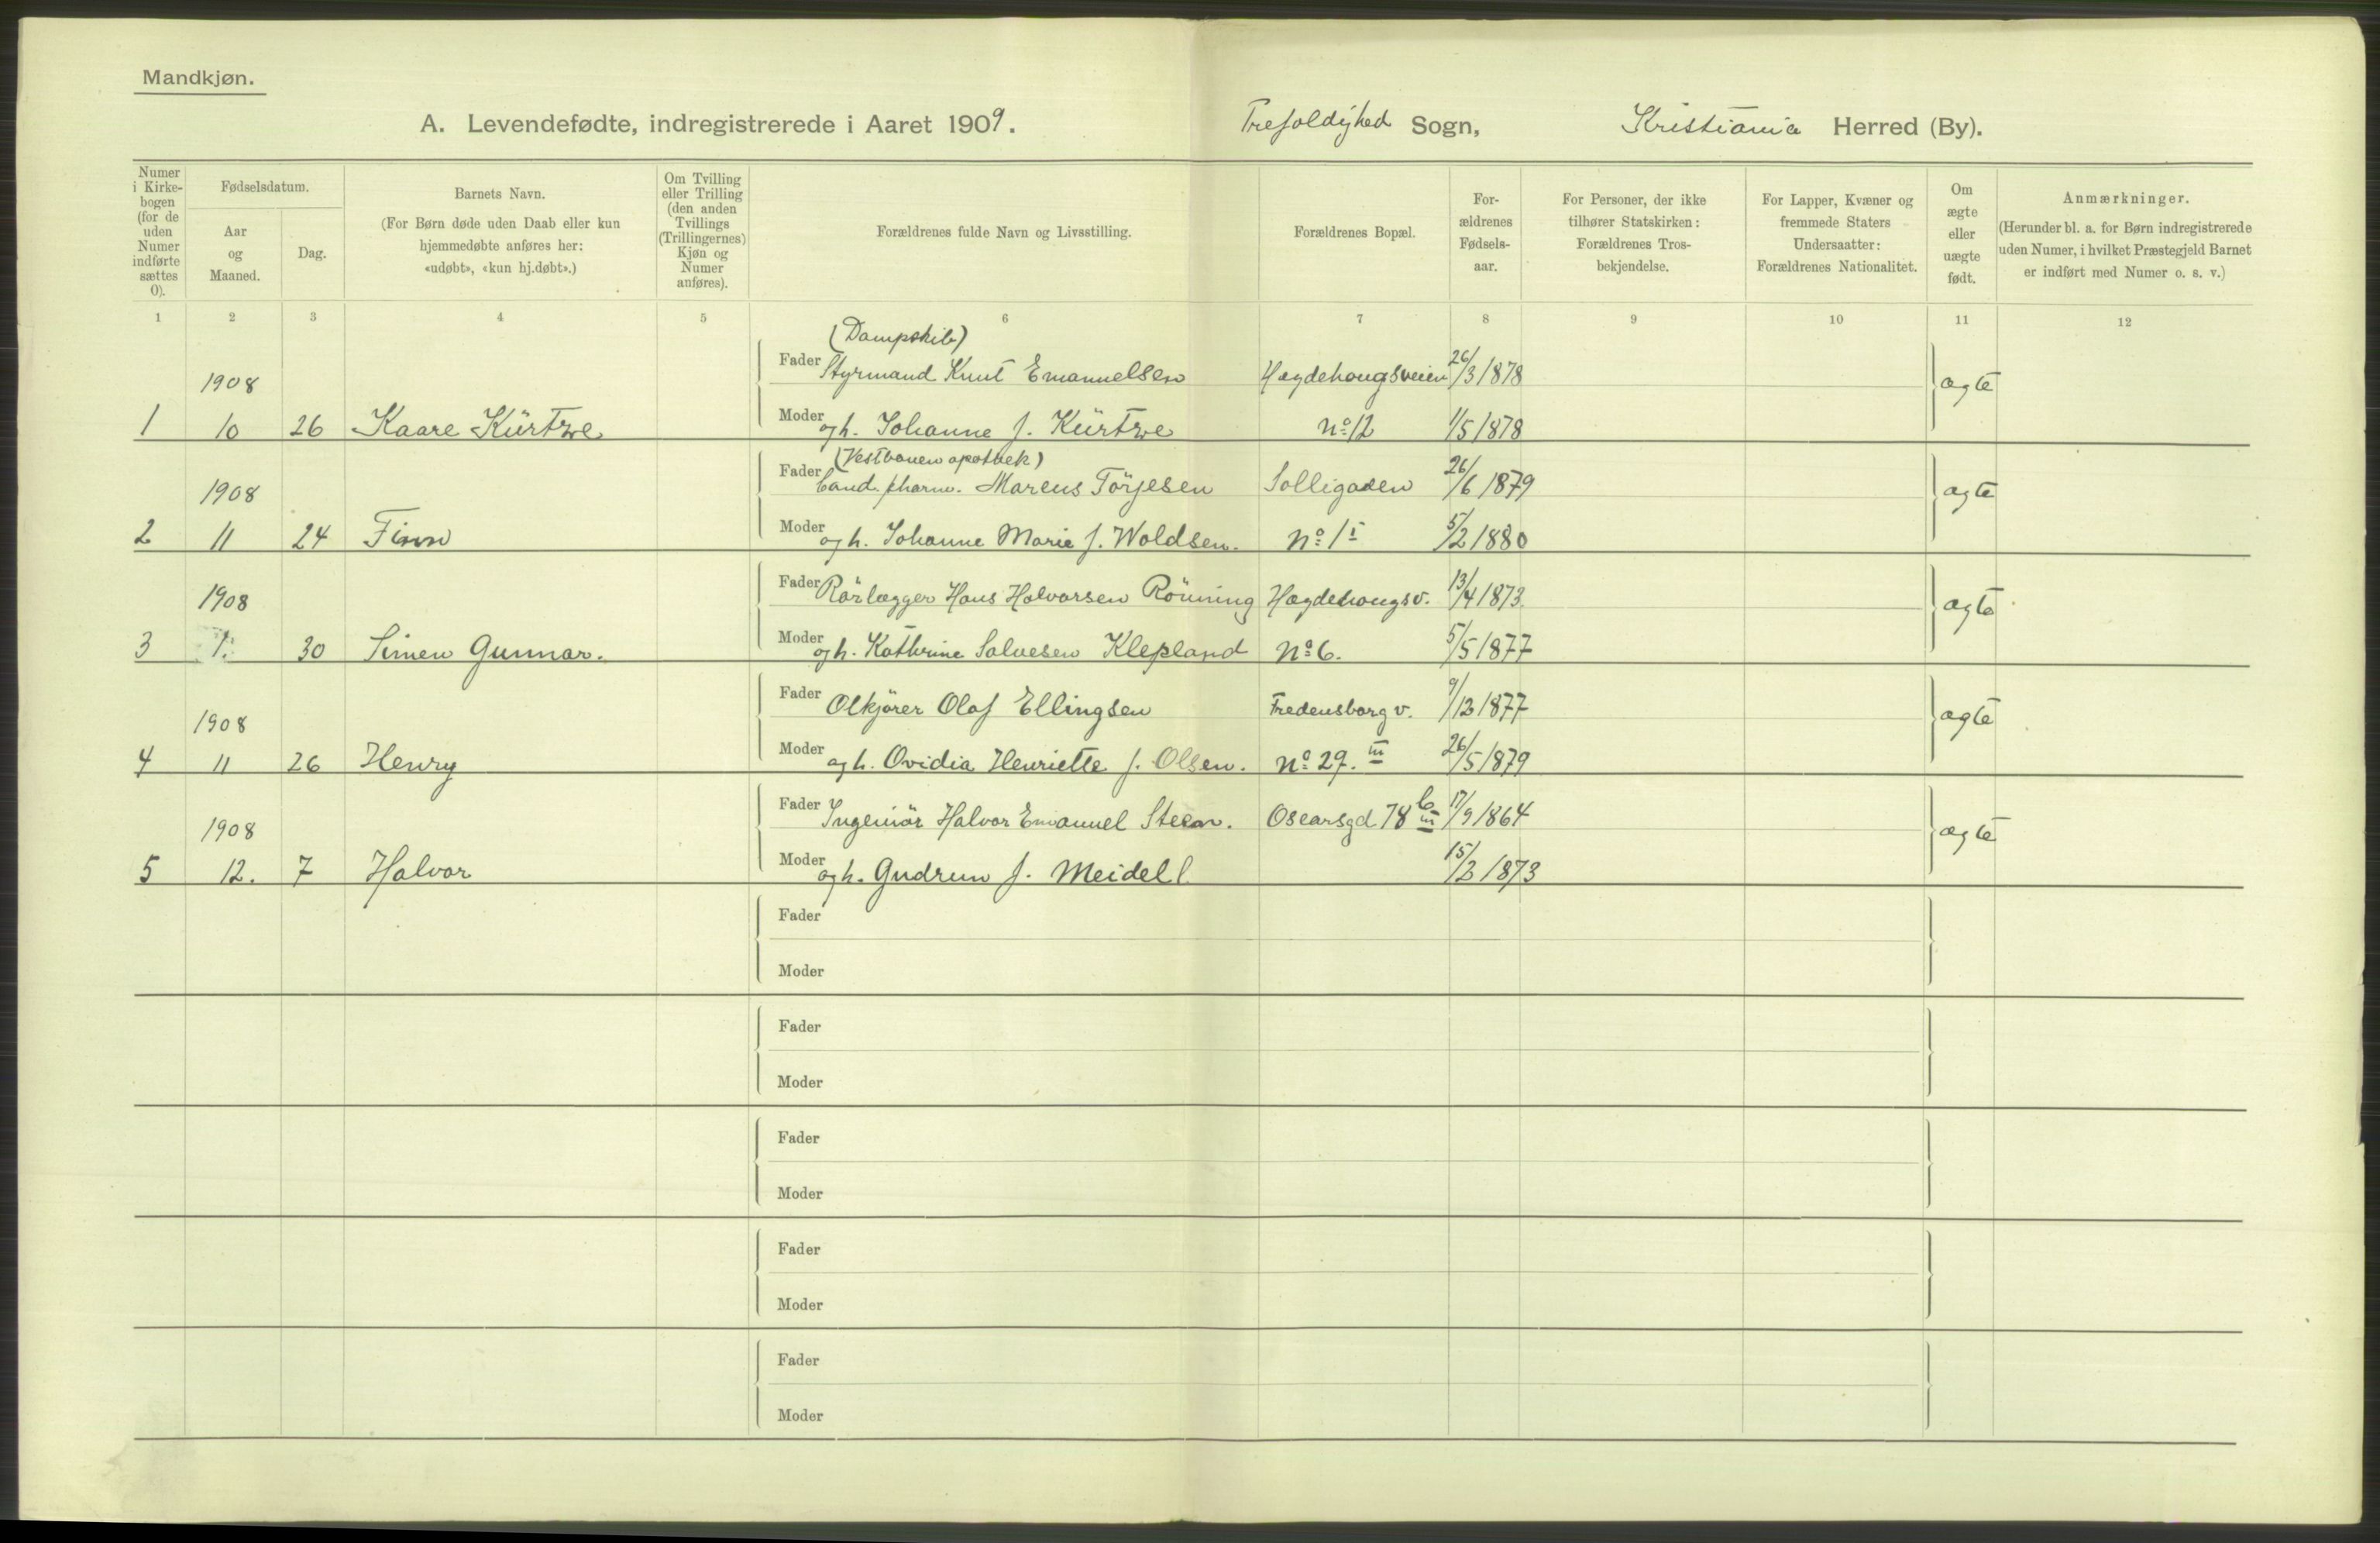 Mandkjøn.
A. Levendefødte, indregistrerede i Aaret 1909. Trefoldighed Sogn, Kristiania Herred (By).
Numer i Kirkebogen (for de uden Numer indførte sættes 0).
Fødselsdatum.
Aar og Maaned.
Dag.
Barnets Navn.
(For Børn døde uden Daab eller kun hjemmedøbte anføres her: «udøbt», «kun hj.døbt».)
Om Tvilling eller Trilling (den anden Tvillings (Trillingernes) Kjøn og Numer anføres).
Forældrenes fulde Navn og Livsstilling.
Forældrenes Bopæl.
Forældrenes Fødselsaar.
For Personer, der ikke tilhører Statskirken: Forældrenes Trosbekjendelse.
For Lapper, Kvæner og fremmede Staters Undersaatter: Forældrenes Nationalitet.
Om ægte eller uægte født.
Anmærkninger.
(Herunder bl. a. for Børn indregistrerede uden Numer, i hvilket Præstegjeld Barnet er indført med Numer o. s. v.)
1 2 3 4 5 6 7 8 9 10 11 12
(Dampskib)
1908 Fader Styrmand Knut Emanuelsen Hægdehougsveien 26/3 1878 ægte
1 10 26 Kaare Kürtzve Moder og h. Johanne f. Kürtzve No 12 1/5 1878
(Vestbanen apothek)
1908 Fader Cand. pharm. Marcus Törjesen Solligaden 26/6 1879 ægte
2 11 24 Finn Moder og h. Johanne Marie f. Woldsen. No 1 I 5/2 1880
1908 Fader Rörlægger Hans Halvorsen Rönning Hægdehougsv. 13/4 1873. ægte
3 1. 30 Simen Gunnar. Moder og h. Kathrine Salvesen Klepland No 6. 5/5 1877
1908 Fader Olkjörer Olaf Ellingsen Fredensborg v. 9/12 1877 ægte
4 11 26 Henry Moder og h. Ovidia Henriette f. Olsen. No 29. III 26/5 1879
1908 Fader Ingeniör Halvor Emanuel Steen. Oscarsgd 78 b III 17/9 1864 ægte
5 12. 7 Halvor Moder og h. Gudrun f. Meidell 15/2 1873
Fader
Moder
Fader
Moder
Fader
Moder
Fader
Moder
Fader
Moder